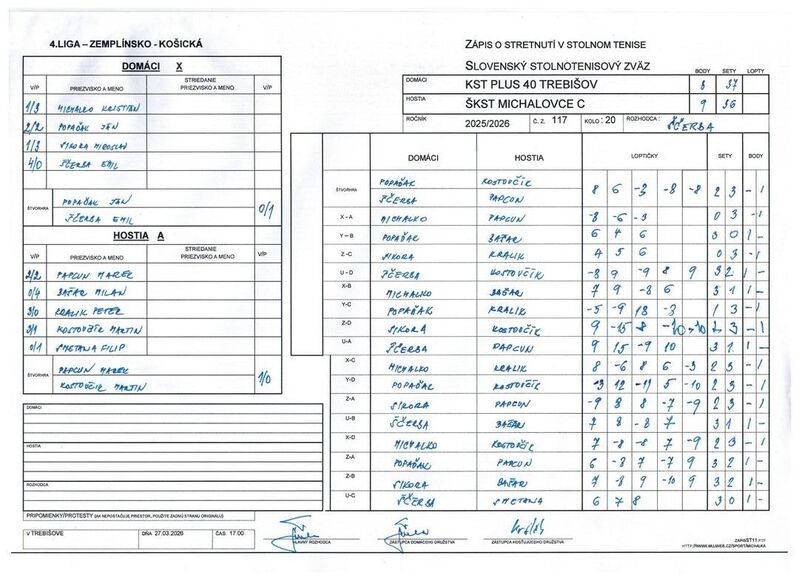 4.LIGA – ZEMPLÍNSKO - KOŠICKÁ
ZÁPIS O STRETNUTÍ V STOLNOM TENISE
SLOVENSKÝ STOLNOTENISOVÝ ZVÄZ
BODY SETY LOPTY
DOMÁCI KST PLUS 40 TREBIŠOV 8 37
HOSTIA ŠKST MICHALOVCE C 9 36
ROČNÍK 2025/2026 Č. Z. 117 KOLO : 20 ROZHODCA : ŠČERBA
DOMÁCI X
V/P PRIEZVISKO A MENO STRIEDANIE PRIEZVISKO A MENO V/P
1/3 MICHALKO KRISTIÁN
2/2 POPAĎAK JÁN
1/3 SIKORA MIROSLAV
4/0 ŠČERBA EMIL
ŠTVORHRA POPAĎAK JÁN
ŠČERBA EMIL 0/1
HOSTIA A
V/P PRIEZVISKO A MENO STRIEDANIE PRIEZVISKO A MENO V/P
2/2 PAPCUN MAREK
0/4 BAŤAR MILAN
3/0 KRALIK PETER
3/1 KOSTOVČÍK MARTIN
0/1 SMETANA FILIP
ŠTVORHRA PAPCUN MAREK
KOSTOVČÍK MARTIN 1/0
DOMÁCI
HOSTIA
ROZHODCA
DOMÁCI HOSTIA LOPTIČKY SETY BODY
ŠTVORHRA POPAĎAK KOSTOVČÍK
ŠČERBA PAPCUN 8 6 -3 -8 -8 2 3 - 1
X - A MICHALKO PAPCUN -8 -6 -3 0 3 - 1
Y – B POPAĎAK BAŤAR 6 4 6 3 0 1 -
Z -C SIKORA KRALIK 4 5 6 0 3 - 1
U - D ŠČERBA KOSTOVČÍK -8 9 -9 8 9 3 2 1 -
X-B MICHALKO BAŤAR 7 9 -8 6 3 1 1 -
Y-C POPAĎAK KRALIK -5 -9 -3 1 3 - 1
Z-D SIKORA KOSTOVČÍK 9 -15 8 -10 -10 2 3 - 1
U-A ŠČERBA PAPCUN 9 15 -9 10 3 1 1 -
X-C MICHALKO KRALIK 8 -6 8 6 -3 2 3 - 1
Y-D POPAĎAK KOSTOVČÍK 12 -11 5 -10 2 3 - 1
Z-A SIKORA PAPCUN -9 8 8 -7 -9 2 3 - 1
U-B ŠČERBA BAŤAR 7 8 -8 7 3 1 1 -
X-D MICHALKO KOSTOVČÍK 7 -8 -8 7 -9 2 3 - 1
Z-A POPAĎAK PAPCUN 6 -8 7 -7 9 3 2 1 -
Z-B SIKORA BAŤAR 7 -8 9 -10 9 3 2 1 -
U-C ŠČERBA SMETANA 6 7 8 3 0 1 -
PRIPOMIENKY/PROTESTY (AK NEPOSTAČUJE PRIESTOR, POUŽITE ZADNÚ STRANU ORIGINÁLU)
V TREBIŠOVE DŇA 27.03.2026 ČAS 17.00
HLAVNÝ ROZHODCA ZÁSTUPCA DOMÁCEHO DRUŽSTVA ZÁSTUPCA HOSŤUJÚCEHO DRUŽSTVA